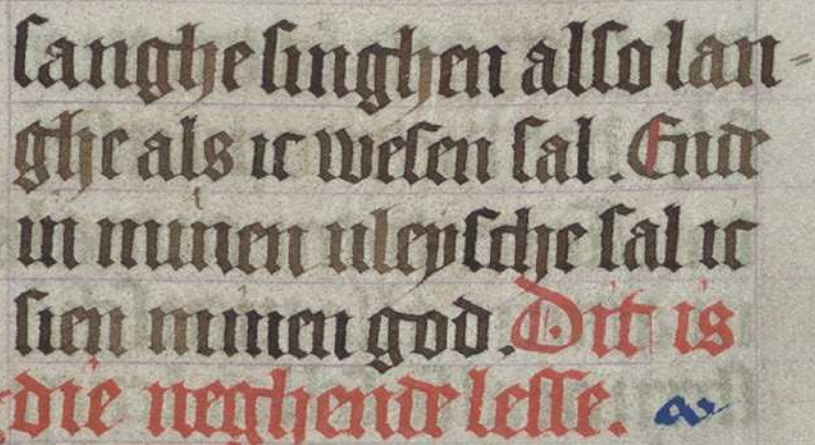 sanghe singhen also lan-
ghe als ic wesen sal. Ende
in minen vleysche sal ic
sien minen god. Dit is
die neghende lesse.